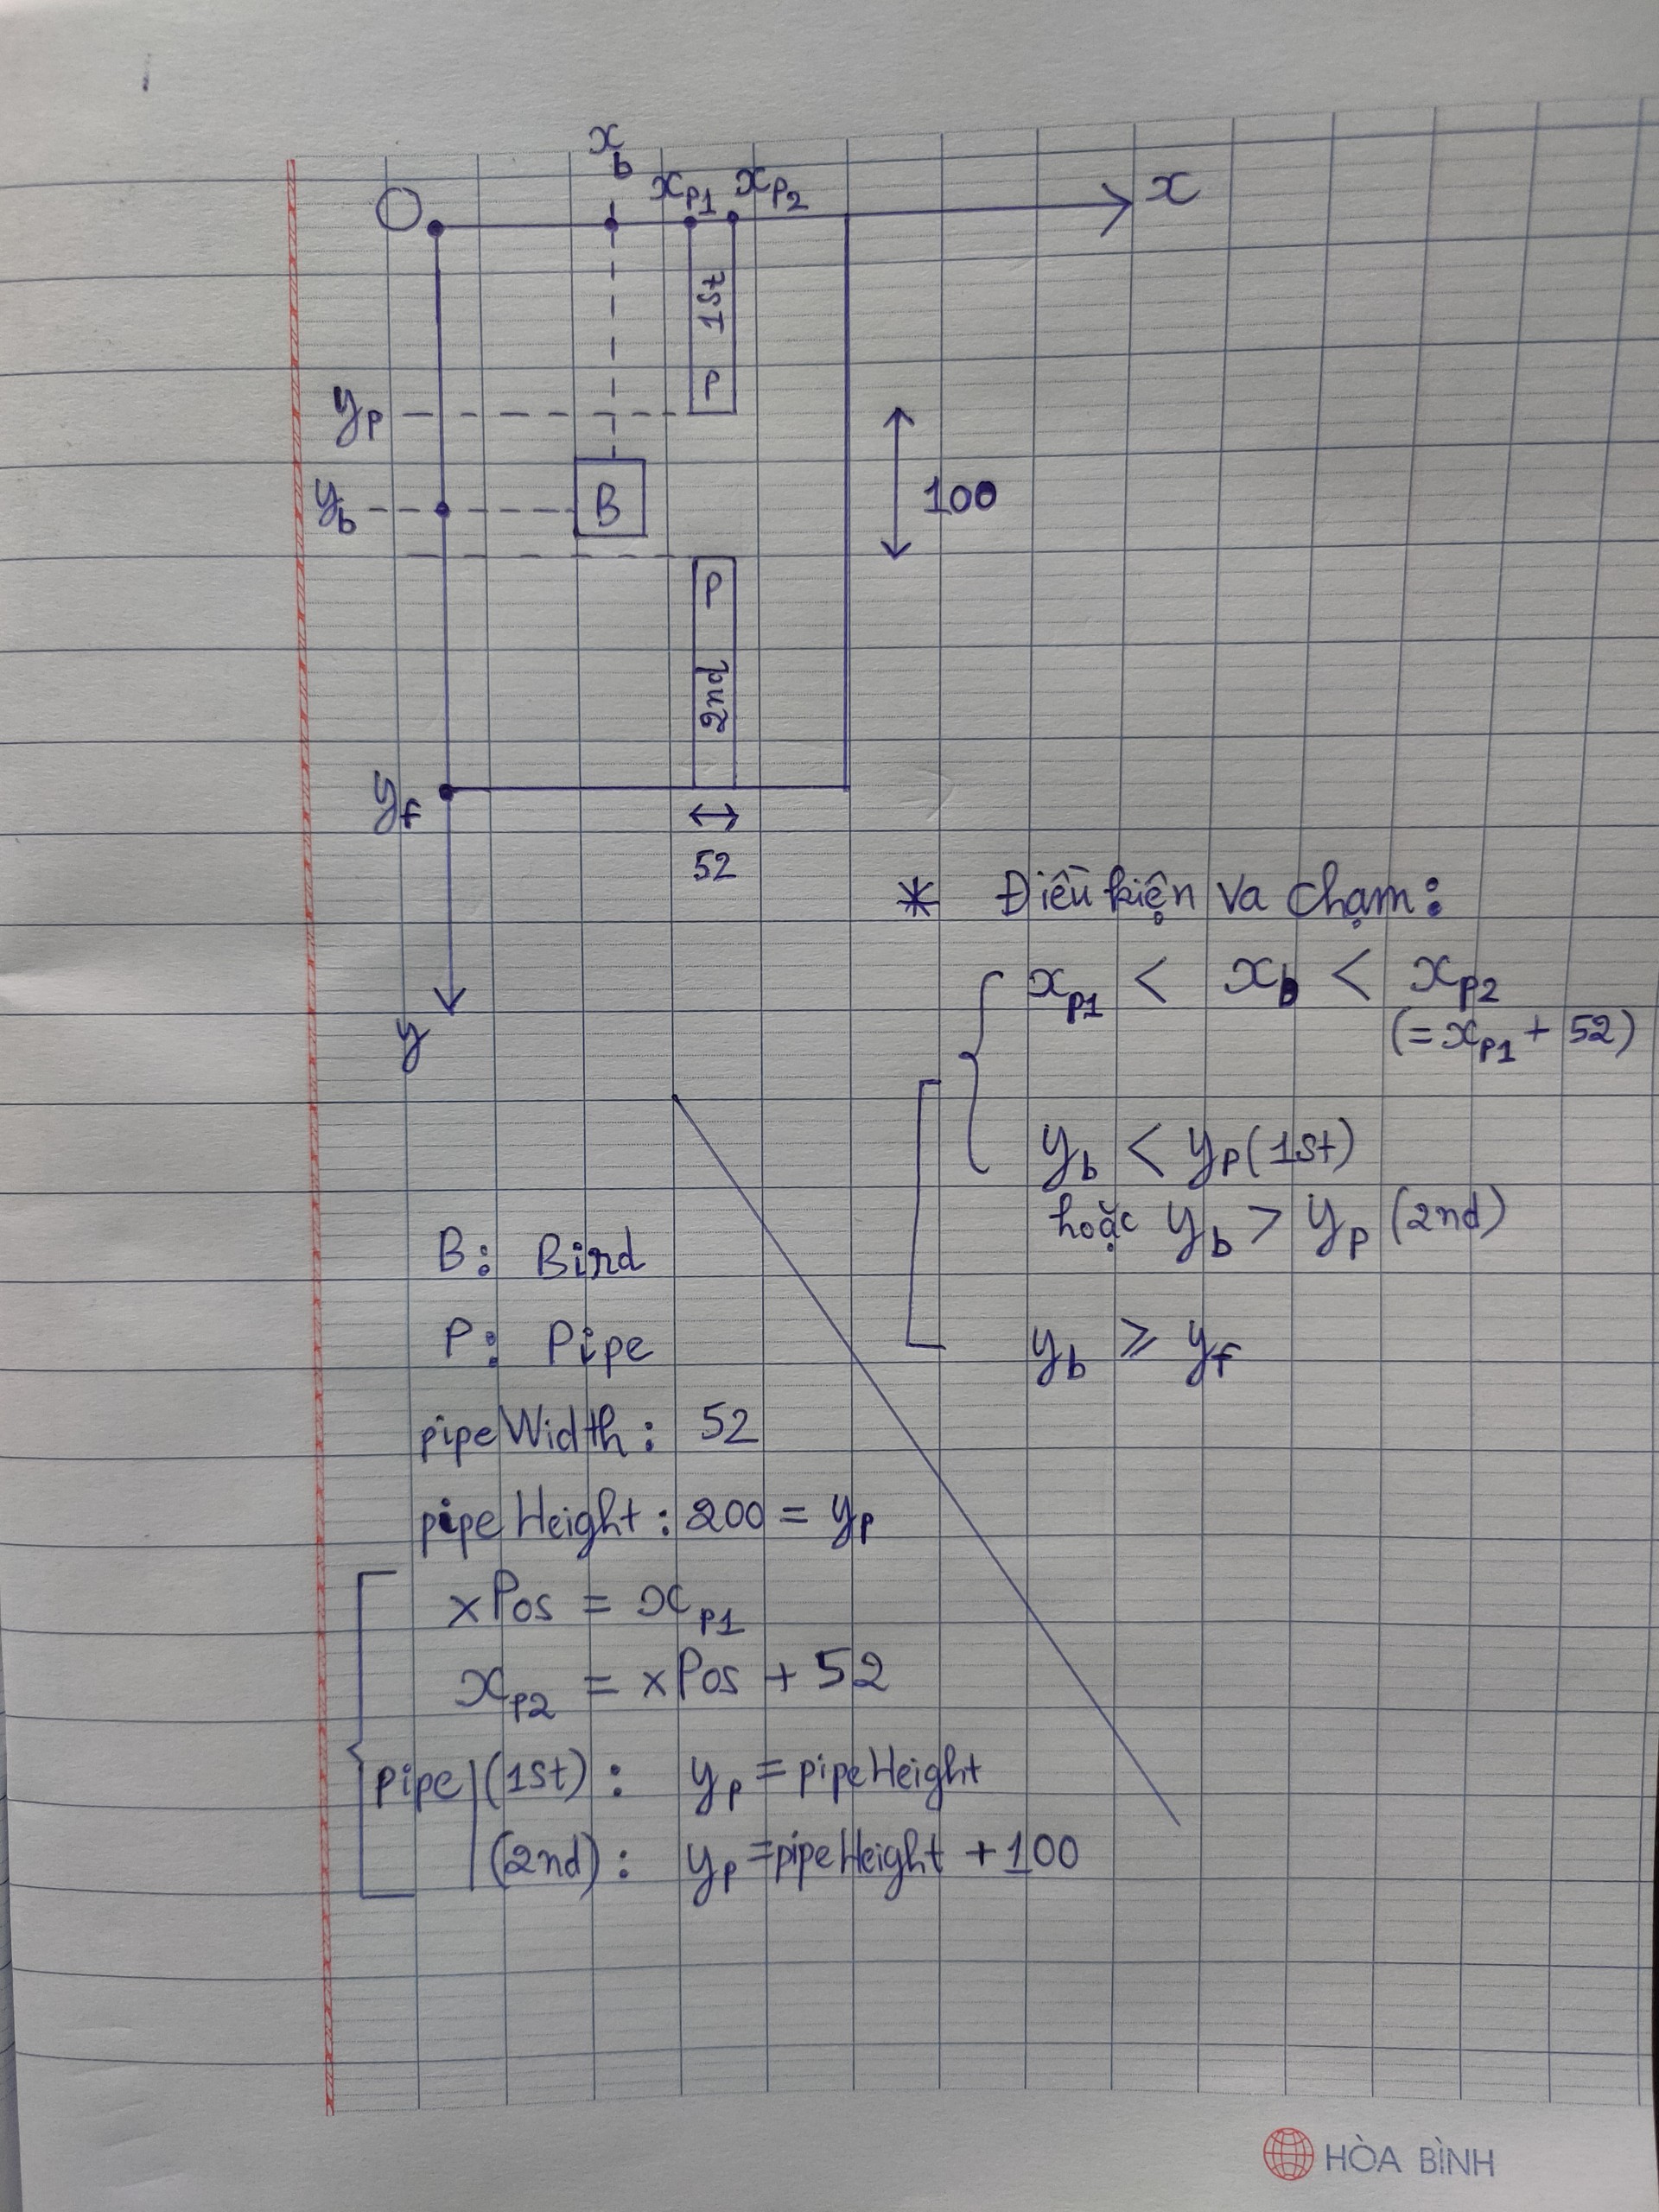 x_b
x_p1 x_p2
O x
1st
P
y_p
y_b B 100
P
2nd
y_f
52
y
* Điều kiện va chạm:
x_p1 < x_b < x_p2
(= x_p1 + 52)
y_b < y_p (1st)
hoặc y_b > y_p (2nd)
y_b ⩾ y_f
B: Bird
P: Pipe
pipeWidth: 52
pipeHeight: 200 = y_p
xPos = x_p1
x_p2 = xPos + 52
pipe (1st): y_p = pipeHeight
(2nd): y_p = pipeHeight + 100
HÒA BÌNH